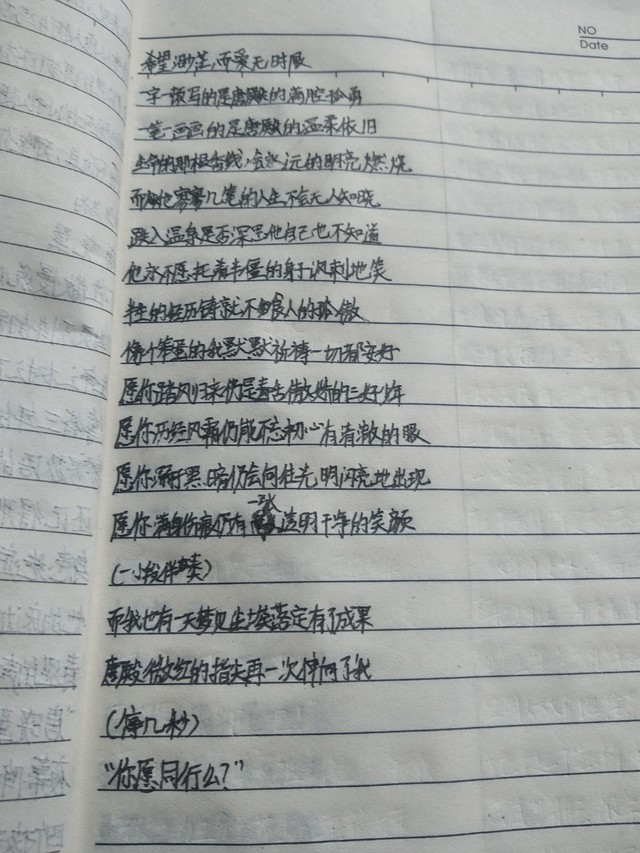 NO
Date
希望渺茫,而爱无时限
一字一顿写的是唐殿的满腔孤勇
一笔一画画的是唐殿的温柔依旧
生命的那根香线,会永远的明亮燃烧
而他寥寥几笔的人生不会无人知晓
跌入温泉是否深思他自己也不知道
他亦不愿托着半僵的身子讽刺地笑
半生的经历铸就不食人的孤傲
像个笨蛋的我默默祈祷一切都安好
愿你踏风归来仍是春古微娇的三好少年
愿你历经风霜仍能不忘初心有清澈的眼
愿你溺于黑暗仍会向往光明闪亮地出现
愿你满身伤痕仍有一张透明干净的笑颜
(一小段伴奏)
而我也有一天梦见尘埃落定有了成果
唐殿微红的指尖再一次伸向了我
(停几秒)
“你愿同行么?”